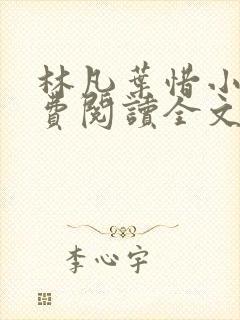 林凡葉惜小
費閱讀全文
李心宇